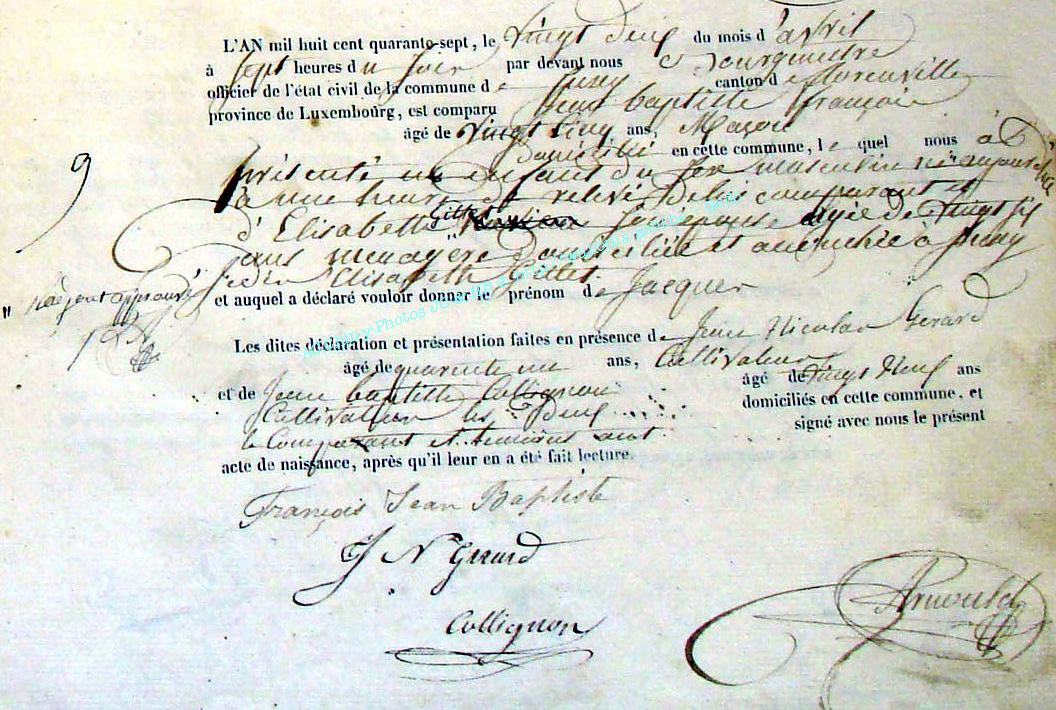 L'AN mil huit cent quarante-sept, le vingt deux du mois d'avril
à sept heures du soir par devant nous
officier de l'état civil de la commune de Juzy canton de
province de Luxembourg, est comparu Jean baptiste françois
âgé de vingt cinq ans, Maçon
domicilié en cette commune, le quel nous à
9
présenté un enfant du sexe masculin né aujourd'hui
à une heure de relevé de lui comparant et
d'Elisabette Gillet son épouse agée de vingt six
ans menagère domiciliée et accouchée à Juzy
Elisabette Gillet
approuvé
et auquel a déclaré vouloir donner le prénom de Jacques
Les dites déclaration et présentation faites en présence de Jean Nicolas Gerard
âgé de quarente un ans, Cultivateur
et de Jean baptiste Collignon âgé de vingt neuf ans
Cultivateur les deux domiciliés en cette commune, et
le Comparant et temoins ont signé avec nous le présent
acte de naissance, après qu'il leur en a été fait lecture.
François Jean Baptiste
J N Gerard
Collignon